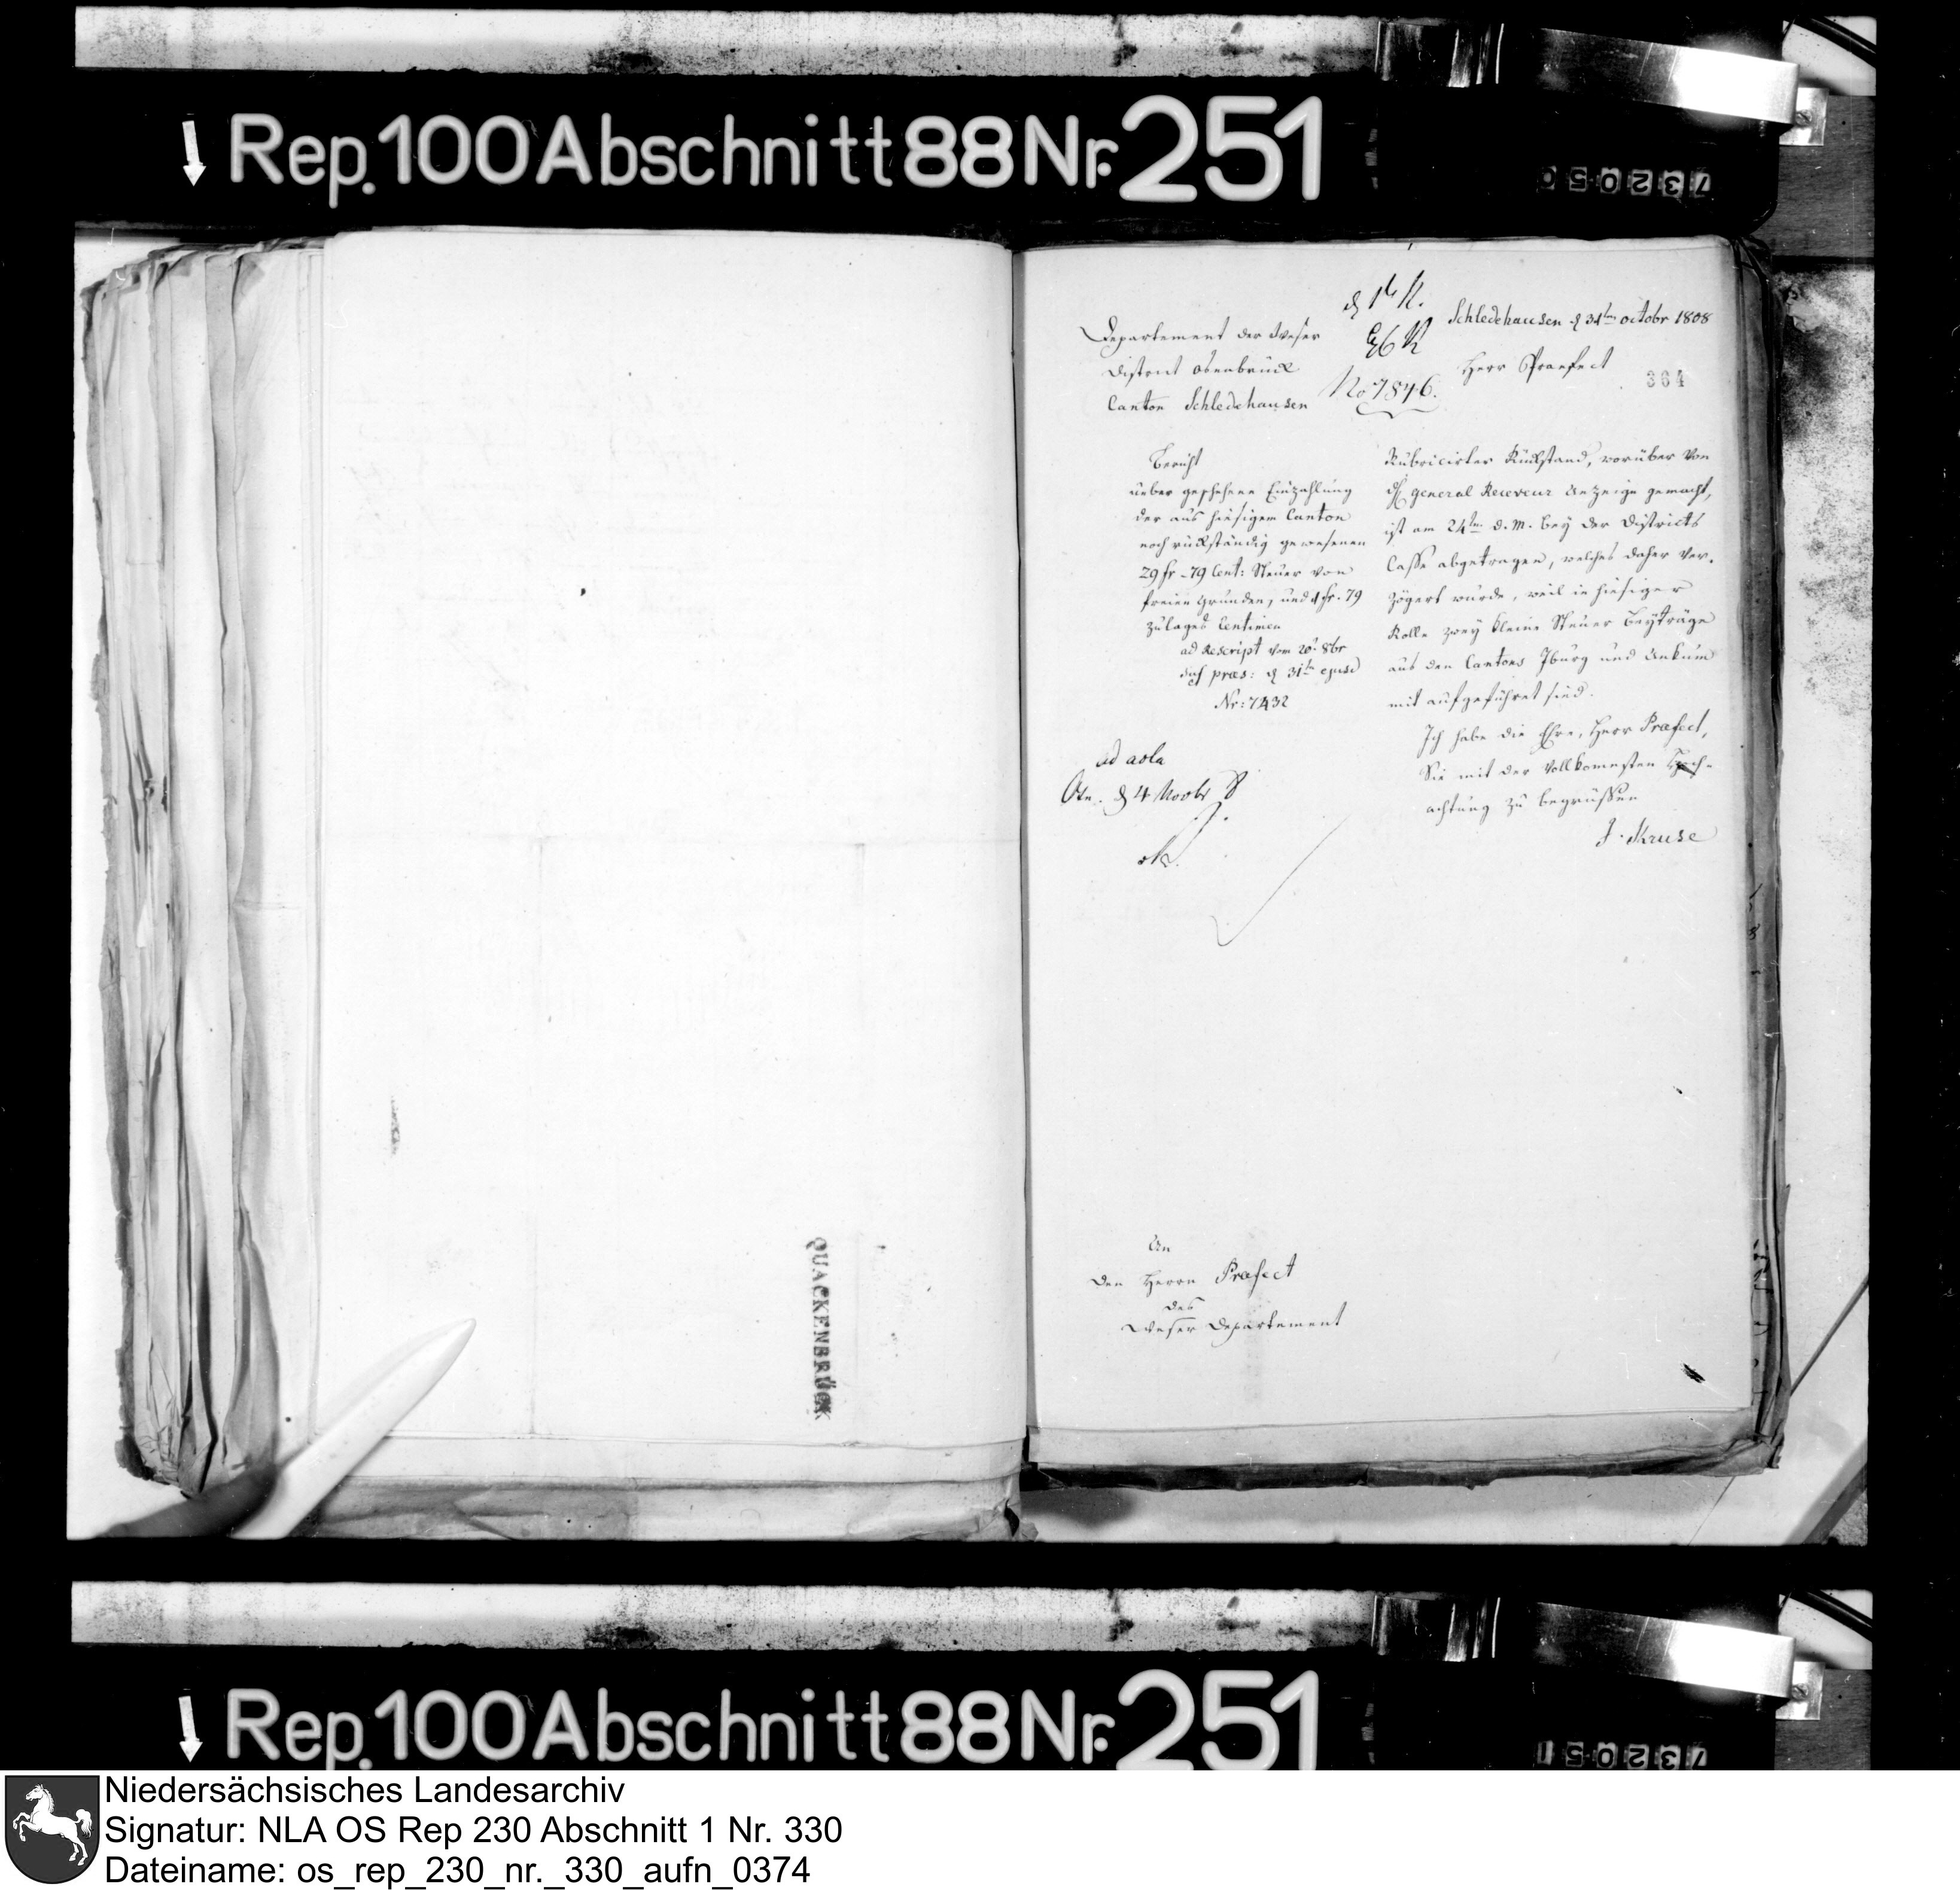 Rep. 100 Abschnitt 88 Nr. 251
732050
Departement der Weser
District Osnabrück
Canton Schledehausen
No 7846.
Schledehausen d 31ten octobr 1808
Herr Praefect
364
Bericht
ueber geschehene Einzahlung
der aus hiesigem Canton
noch rückständig gewesenen
29 fr - 79 Cent: Steuer von
freien Gründen, und 4 fr. 79
zulages Centimen
ad Rescript vom 20t 8br
præs: d 31ten ejusd
Nr: 7432
ad acta
Osn. d 4 Novbr 8
Rubricirter Rückstand, worüber von
general Receveur Anzeige gemacht,
ist am 24ten d. M. bey der Districts
Casse abgetragen, welches daher ver-
zögert wurde, weil in hiesiger
Rolle zwey kleine Steuer Beyträge
aus den Cantons Iburg und Ankum
mit aufgeführet sind.
Ich habe die Ehre, Herr Præfect,
Sie mit der vollkomensten Hoch-
achtung zu begrüssen
J. Kruse
An
den Herrn Præfect
des
Weser Departement
QUACKENBRÜCK
Rep. 100 Abschnitt 88 Nr. 251
732051
Niedersächsisches Landesarchiv
Signatur: NLA OS Rep 230 Abschnitt 1 Nr. 330
Dateiname: os_rep_230_nr._330_aufn_0374